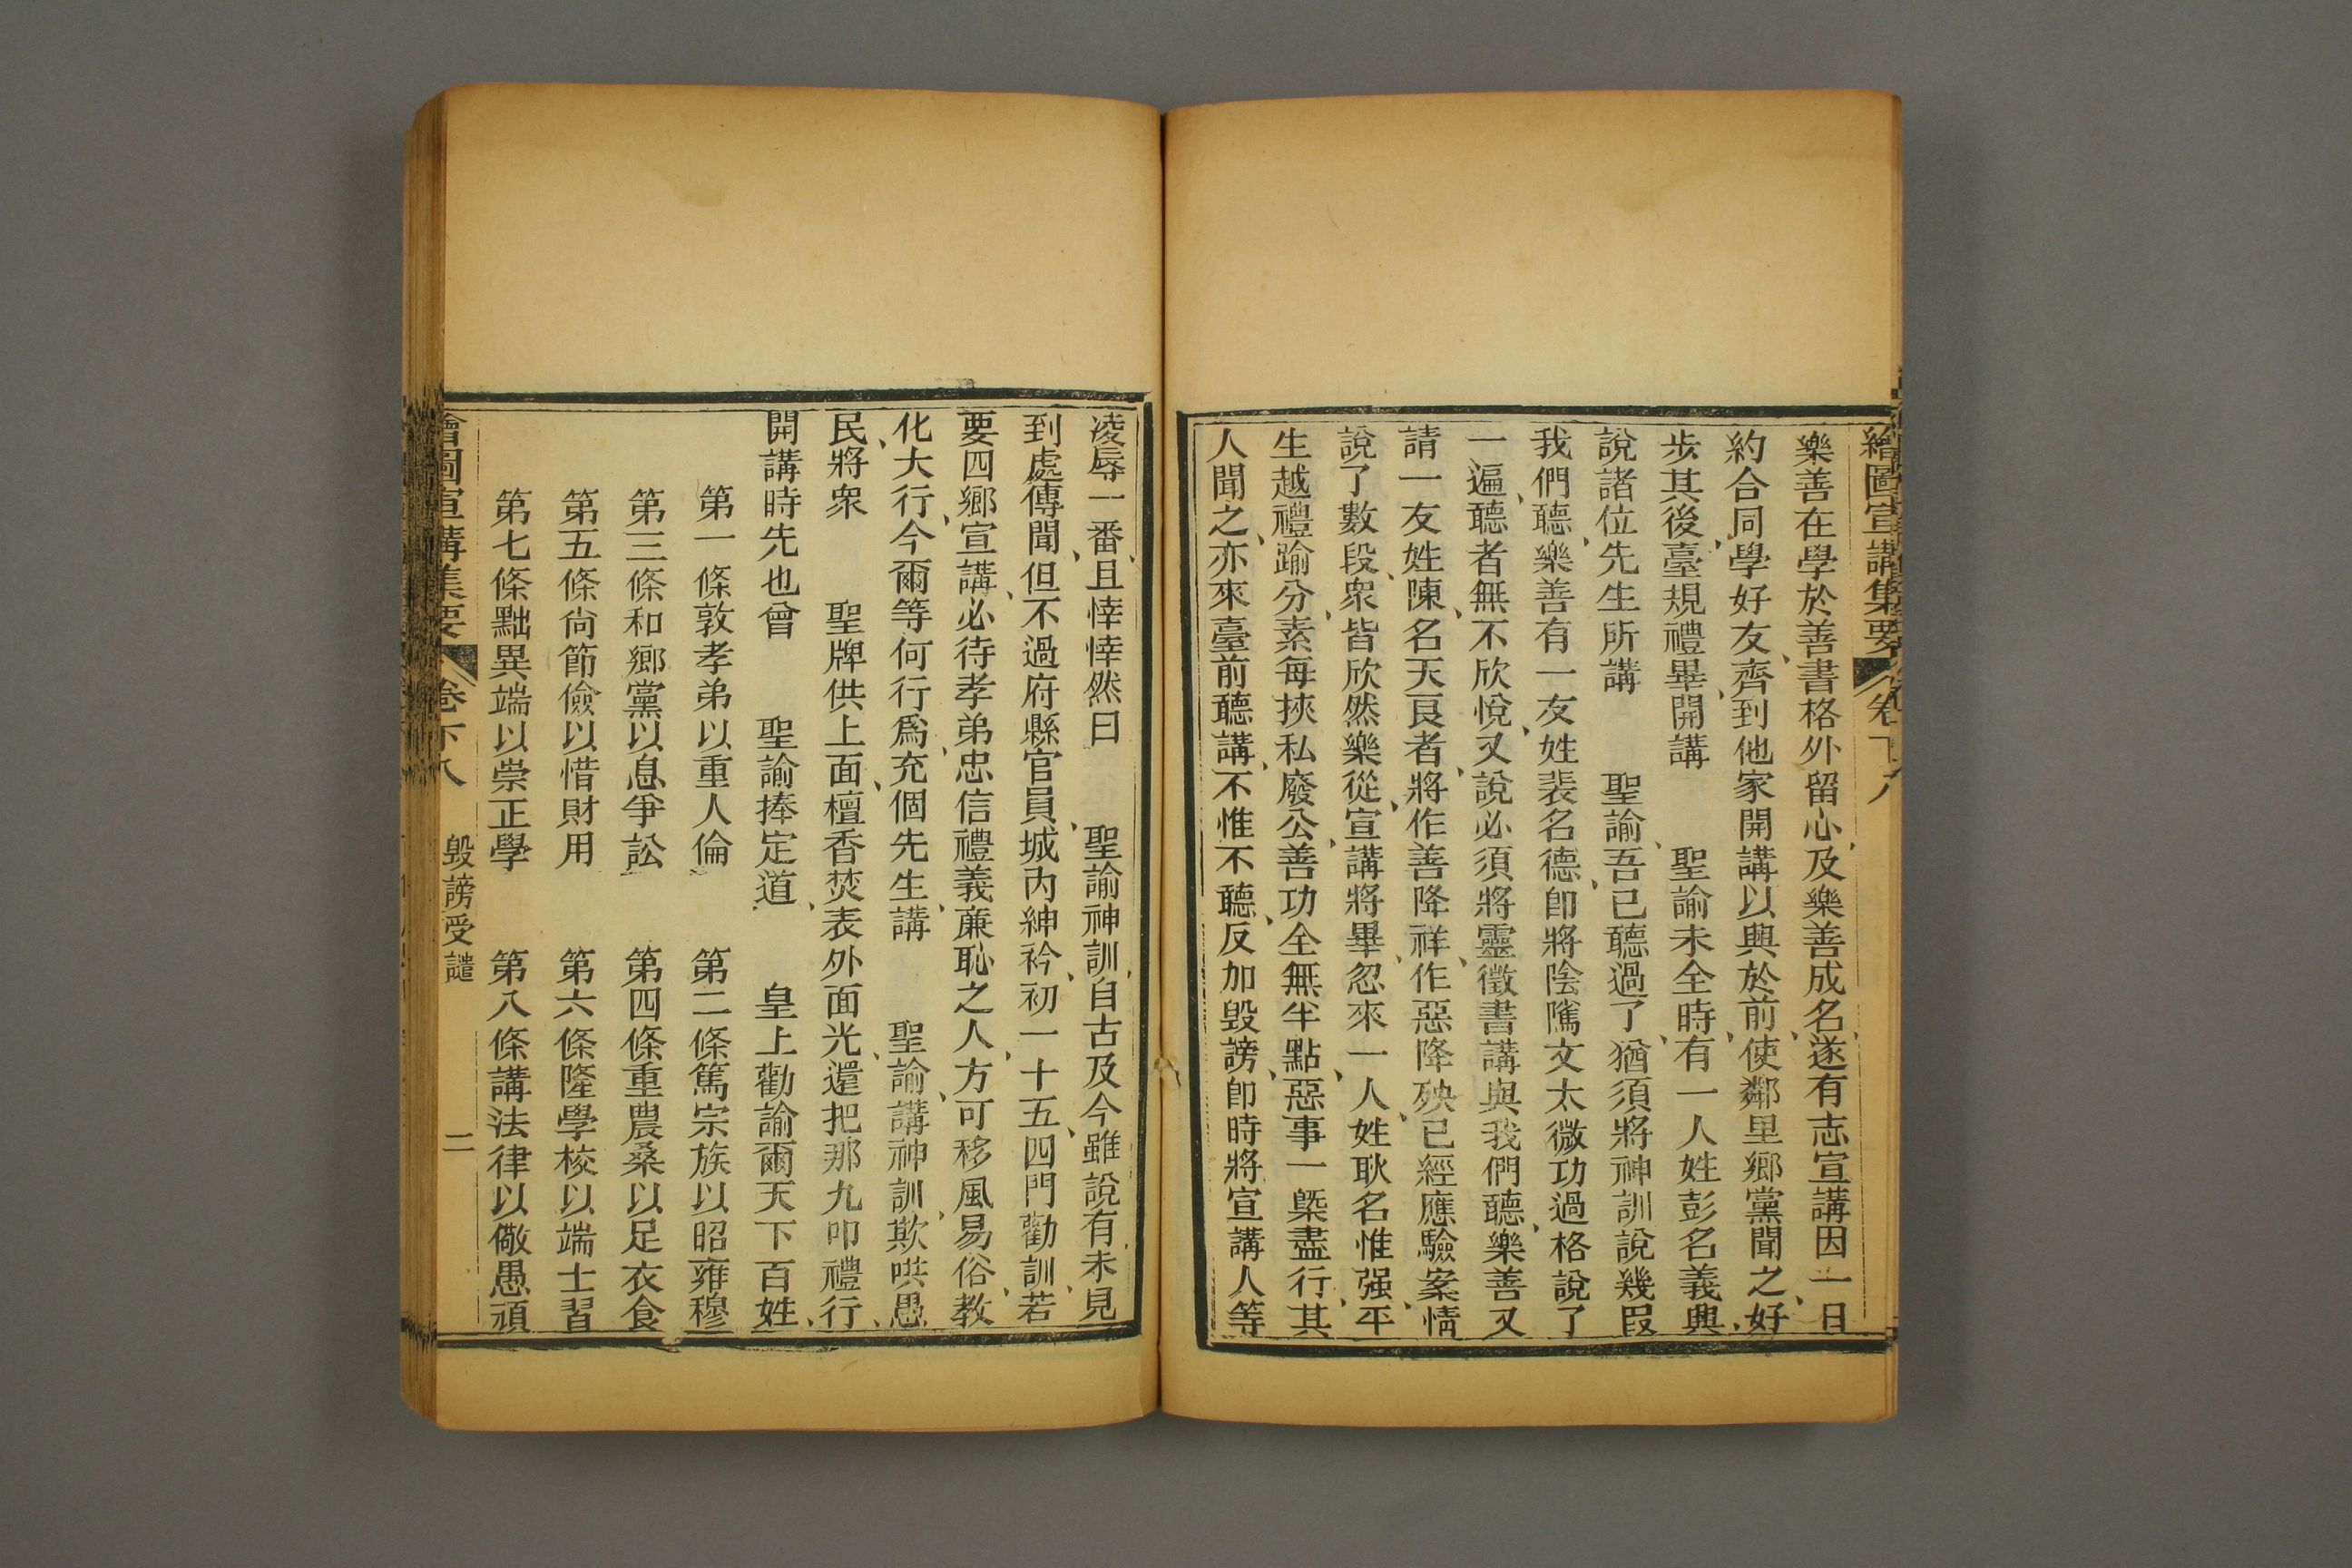 繪圖宣講集要 卷下八
樂善在學於善書格外留心及樂善成名遂有志宣講因一日
約合同學好友齊到他家開講以興於前使鄰里鄉黨聞之好
步其後臺規禮畢開講 聖諭未全時有一人姓彭名義興
說諸位先生所講 聖諭吾已聽過了猶須將神訓說幾叚
我們聽樂善有一友姓裴名德卽將陰隲文太微功過格說了
一遍聽者無不欣悅又說必須將靈徵書講與我們聽樂善又
請一友姓陳名天良者將作善降祥作惡降殃已經應驗案情
說了數段衆皆欣然樂從宣講將畢忽來一人姓耿名惟强平
生越禮踰分素每挾私廢公善功全無半點惡事一槩盡行其
人聞之亦來臺前聽講不惟不聽反加毀謗卽時將宣講人等
凌辱一番且悻悻然曰 聖諭神訓自古及今雖說有未見
到處傳聞但不過府縣官員城內紳衿初一十五四門勸訓若
要四鄉宣講必待孝弟忠信禮義廉恥之人方可移風易俗教
化大行今爾等何行爲充個先生講 聖諭講神訓欺哄愚
民將衆 聖牌供上面檀香焚表外面光還把那九叩禮行
開講時先也曾 聖諭捧定道 皇上勸諭爾天下百姓
第一條敦孝弟以重人倫 第二條篤宗族以昭雍穆
第三條和鄉黨以息爭訟 第四條重農桑以足衣食
第五條尙節儉以惜財用 第六條隆學校以端士習
第七條黜異端以崇正學 第八條講法律以儆愚頑
繪圖宣講集要 卷下八 毀謗受譴 二